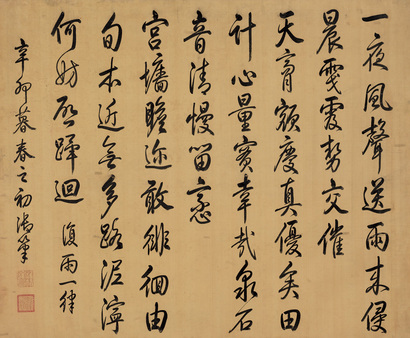 一夜風聲送雨來侵
晨霡霂勢交催
天膏額慶真優矣田
計心量實幸哉泉石
音清慢留戀
宮墻瞻迩敢徘徊由
旬本近無多路泥濘
何妨啟蹕迴 復雨一律
辛卯暮春之初御筆